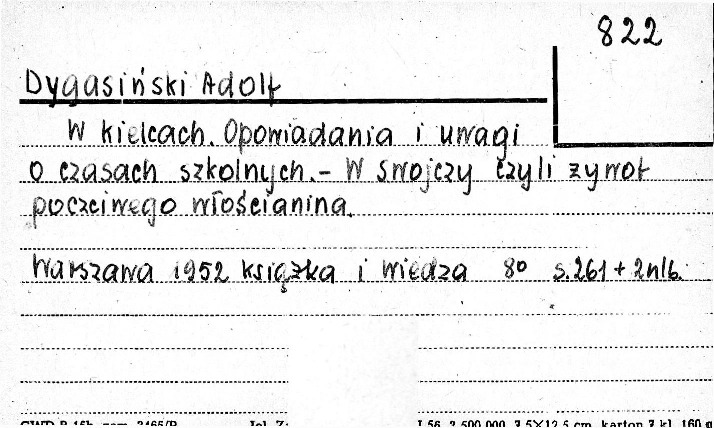 822
Dygasiński Adolf
W kielcach. Opowiadania i uwagi
o czasach szkolnych. - W Swojczy czyli zywot
poczciwego włościanina.
Warszawa 1952 książka i wiedza 8° s. 261 + 2 nlb.
165/P
I 56 2.500.000 7,5×12,5 cm, karton 7 kl. 160 g